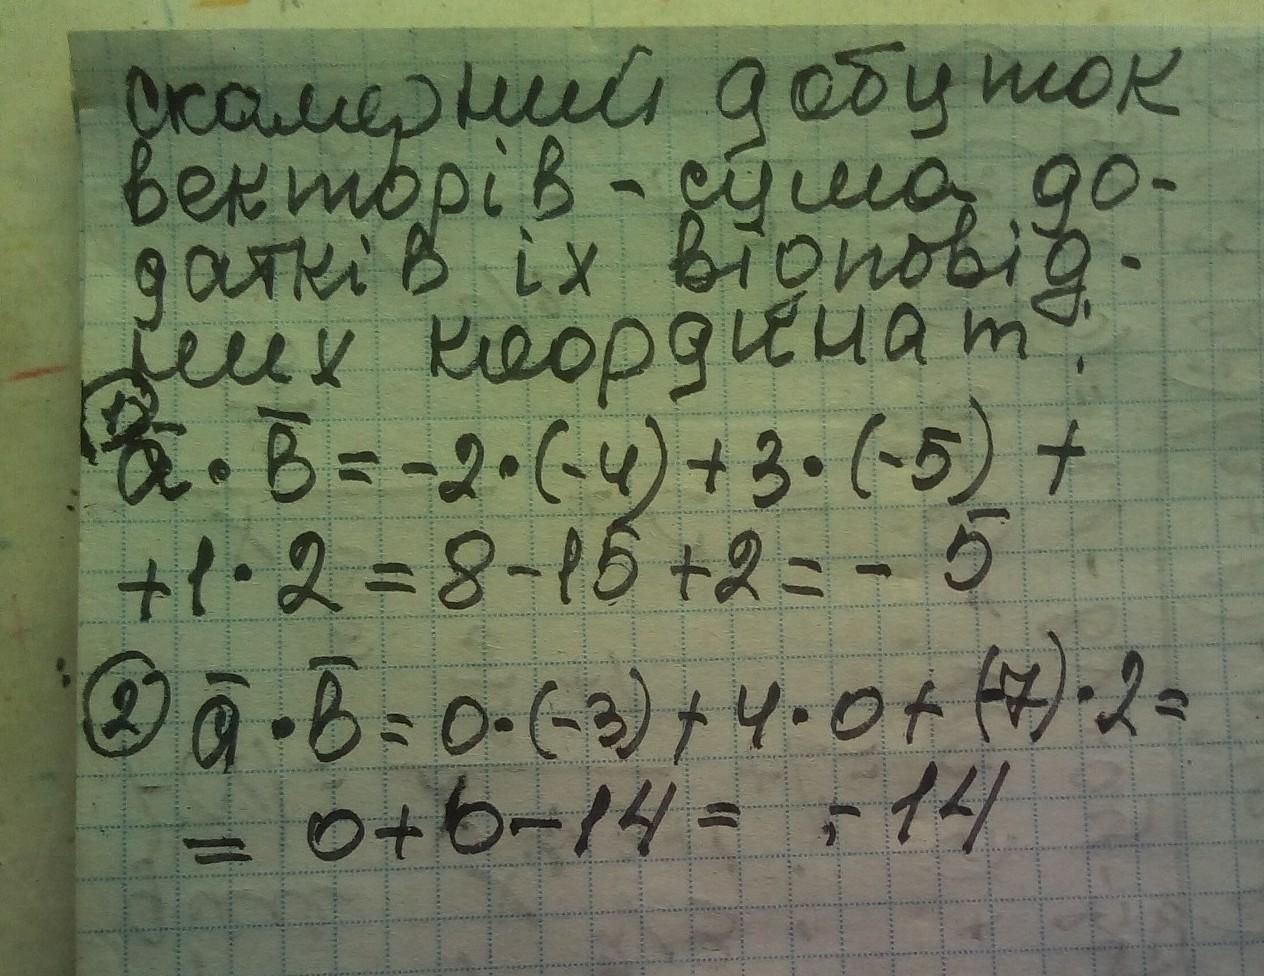 скалярний добуток
векторів - сума до-
датків їх відповід-
них координат:
1) a̅ · b̅ = -2·(-4) + 3·(-5) +
+1·2 = 8 - 15 + 2 = - 5
2) a̅ · b̅ = 0·(-3) + 4·0 + (-7)·2 =
= 0 + 0 - 14 = - 14